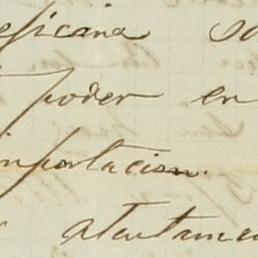 esicana so
poder en
importacion.
atentamen